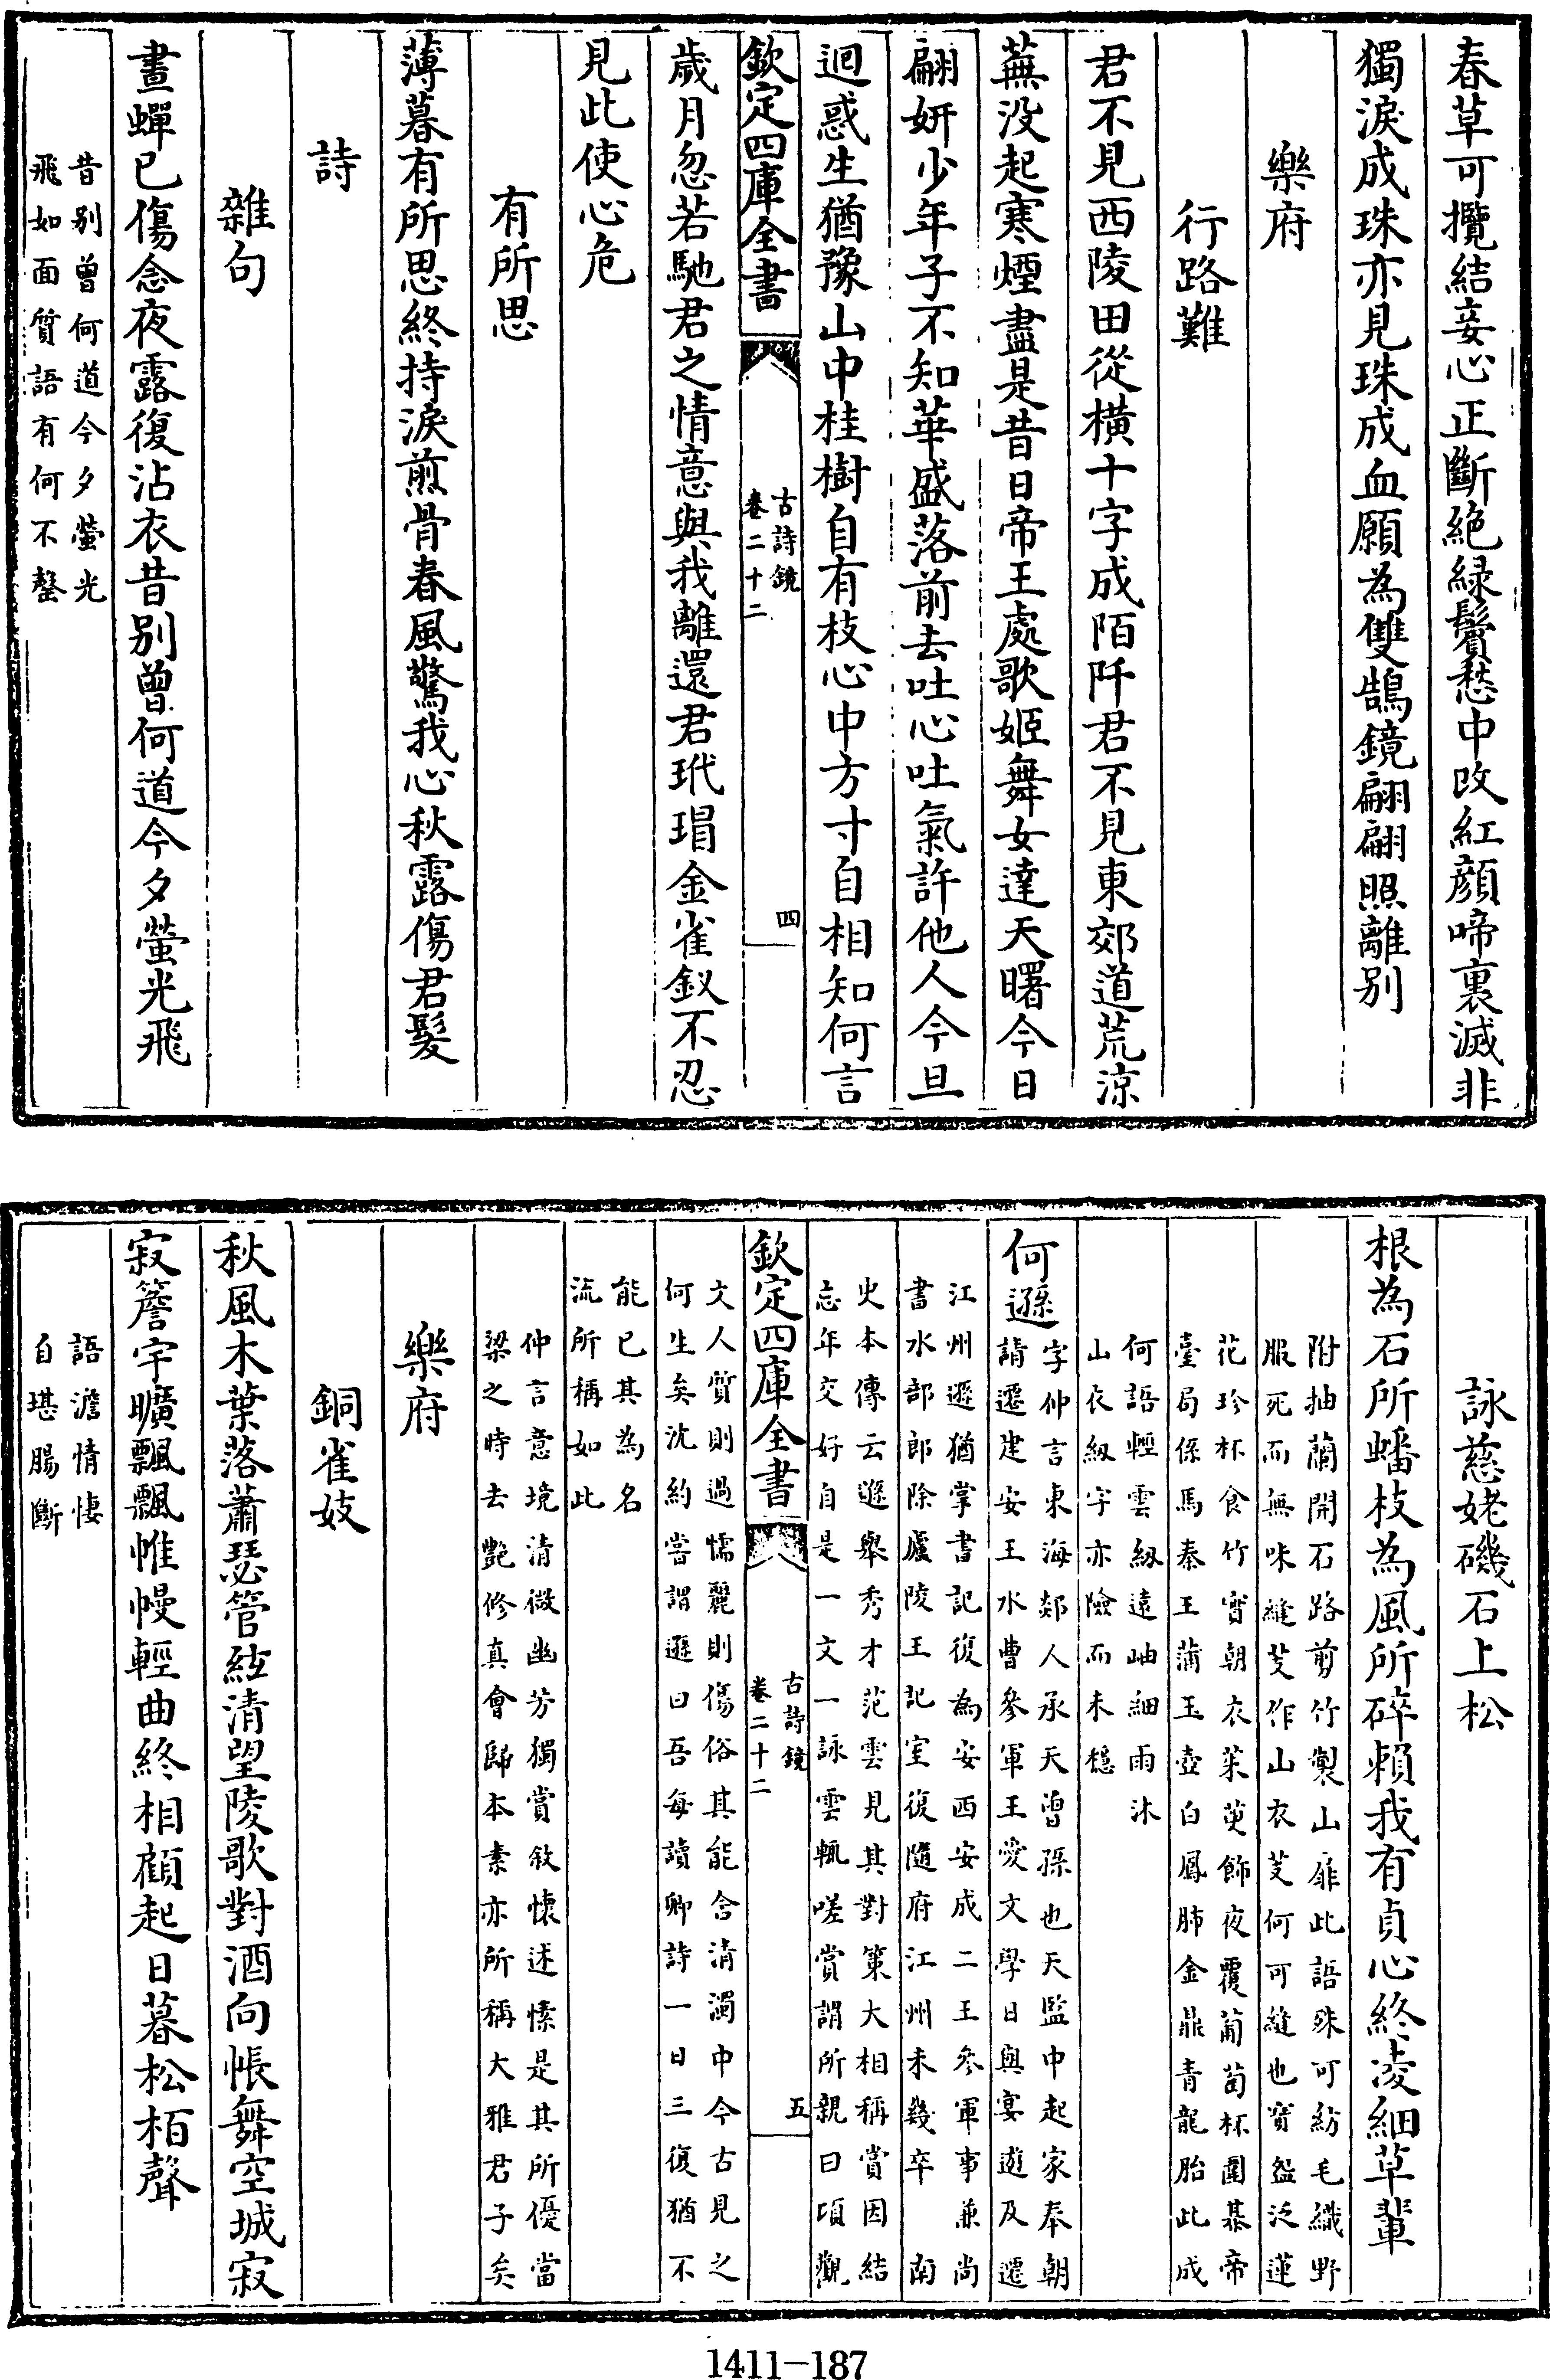 春草可攬結妾心正斷絶緑鬢愁中改紅顔啼裏滅非
獨淚成珠亦見珠成血願為雙鵠鏡翩翩照離别
樂府
行路難
君不見西陵田從横十字成陌阡君不見東郊道荒涼
蕪没起寒煙盡是昔日帝王處歌姬舞女達天曙今日
翩妍少年子不知華盛落前去吐心吐氣許他人今旦
迴惑生猶豫山中桂樹自有枝心中方寸自相知何言
欽定四庫全書
古詩鏡
卷二十二
四
歲月忽若馳君之情意與我離還君玳瑁金雀釵不忍
見此使心危
有所思
薄暮有所思終持淚煎骨春風驚我心秋露傷君髮
詩
雜句
晝蟬已傷念夜露復沾衣昔别曾何道今夕螢光飛
昔别曾何道今夕螢光
飛如面質語有何不罄
詠慈姥磯石上松
根為石所蟠枝為風所碎賴我有貞心終凌細草輩
附抽蘭開石路剪竹製山扉此語殊可紡毛織野
服死而無味縫芰作山衣芰何可縫也寶盌泛蓮
花珍杯食竹實朝衣茱萸飾夜覆葡萄杯圍棊帝
臺局係馬秦王蒲玉壺白鳳肺金鼎青龍胎此成
何語輕雲紉遠岫細雨沐
山衣紉字亦險而未穩
何遜
字仲言東海郯人承天曾孫也天監中起家奉朝
請遷建安王水曹參軍王愛文學日與宴遊及遷
江州遜猶掌書記復為安西安成二王參軍事兼尚
書水部郎除廬陵王記室復隨府江州未幾卒 南
史本傳云遜舉秀才范雲見其對策大相稱賞因結
忘年交好自是一文一詠雲輒嗟賞謂所親曰頃觀
欽定四庫全書
古詩鏡
卷二十二
五
文人質則過懦麗則傷俗其能含清濁中今古見之
何生矣沈約嘗謂遜曰吾每讀卿詩一日三復猶不
能已其為名
流所稱如此
仲言意境清微幽芳獨賞敘懷述愫是其所優當
梁之時去艷修真會歸本素亦所稱大雅君子矣
樂府
銅雀妓
秋風木葉落蕭瑟管絃清望陵歌對酒向帳舞空城寂
寂簷宇曠飄飄帷幔輕曲終相顧起日暮松栢聲
語澹情悽
自堪腸斷
1411—187